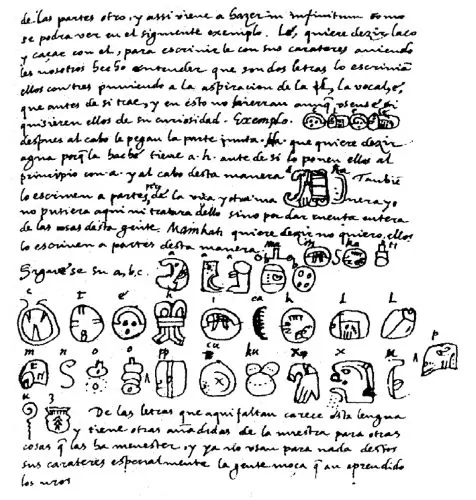 de las partes otro, y assi viene a hazer in infinitum como
se podra ver en el siguiente exemplo. Lé, quiere dezir laço
y caçar con el, para escrivirle con sus carateres aviendo
les nosotros hecho entender que son dos letras lo escrivian
ellos con tres puniendo a la aspiracion de la l, la vocal é,
que antes de si trae, y en esto no hierran aunq usense, si
quisieren ellos de su curiosidad. Exemplo.
despues al cabo le pegan la parte junta. Ha que quiere dezir
agua porq la hache tiene a. h. ante de si lo ponen ellos al
principio con a. y al cabo desta manera Tambiē
lo escriven a partes de la una y otra manera, yo
no pusiera aqui ni tratara dello sino por dar cuenta entera
de las cosas desta gente. Mainkati quiere dezir no quiero, ellos
lo escriven a partes desta manera
ma i n ka ti
Siguese su a, b, c.
a a a b b
c t e h i ca k l l
m n o o pp cu ku x x u
p
u z
De las letras que aqui faltan carece esta lengua
y tiene otras añadidas de la nuestra para otras
cosas q las ha menester, y ya no usan para nada destos
sus carateres especialmente la gente moça q an aprendido
los nros